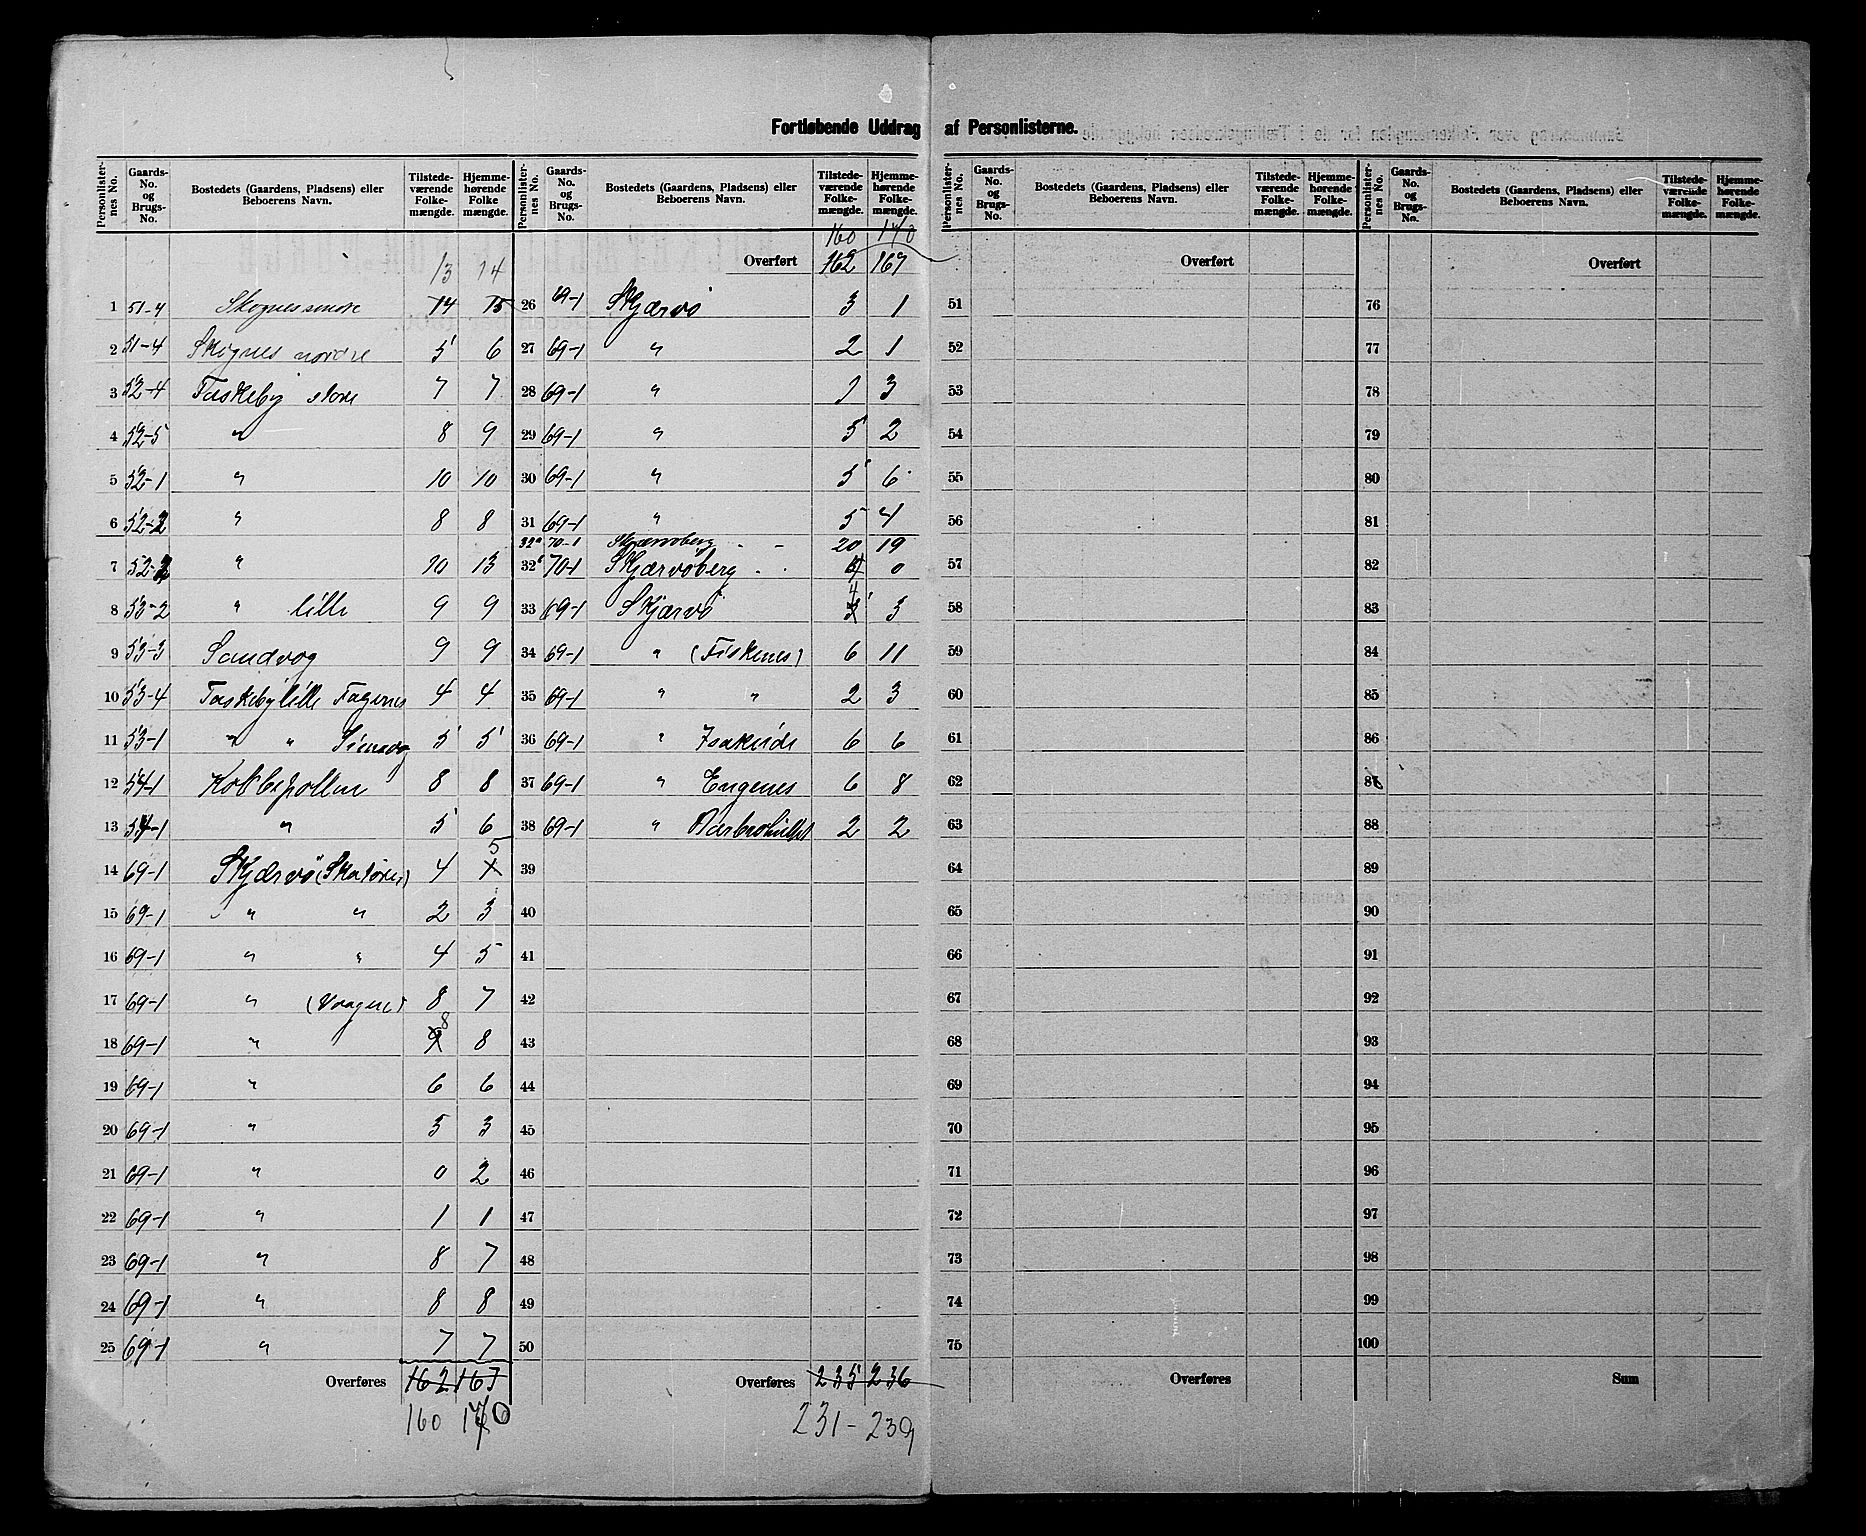 Fortløbende Uddrag af Personlisterne.
Personlisternes No. | Gaards-No. og Brugs-No. | Bostedets (Gaardens, Pladsens) eller Beboerens Navn. | Tilstedeværende Folkemængde. | Hjemmehørende Folkemængde.
13 14
1 51-4 Skognes søndre 14 15
2 51-4 Skognes nordre 5 6
3 52-4 Taskeby store 7 7
4 52-5 " 8 9
5 52-1 " 10 10
6 52-2 " 8 8
7 52-2 " 10 13
8 53-2 " lille 9 9
9 53-3 Sandvog 9 9
10 53-4 Taskeby lille Fagernes 4 4
11 53-1 " " 5 5
12 54-1 Kobbepollen 8 8
13 54-1 " 5 6
5
14 69-1 Skjærvö (Skatören) 4
15 69-1 " " 2 3
16 69-1 " " 4 5
17 69-1 " (Vaagen) 8 7
8
18 69-1 " 8
19 69-1 " 6 6
20 69-1 " 5 3
21 69-1 " 0 2
22 69-1 " 1 1
23 69-1 " 8 7
24 69-1 " 8 8
25 69-1 " 7 7
Overføres 162 167
160 170
Personlisternes No. | Gaards-No. og Brugs-No. | Bostedets (Gaardens, Pladsens) eller Beboerens Navn. | Tilstedeværende Folkemængde. | Hjemmehørende Folkemængde.
160 170
Overført 162 167
26 69-1 Skjærvö 3 1
27 69-1 " 2 1
28 69-1 " 1 3
29 69-1 " 5 2
30 69-1 " 5 6
31 69-1 " 5 4
32a 70-1 Skjærvöberg - - 20 19
32b 70-1 Skjærvöberg . . 0
4
33 69-1 Skjærvö 3
34 69-1 " (Fiskenes) 6 11
35 69-1 " " 2 3
36 69-1 " Isakeide 6 6
37 69-1 " Engenes 6 8
38 69-1 " 2 2
39
40
41
42
43
44
45
46
47
48
49
50
Overføres 235 236
231 - 239
Personlisternes No. | Gaards-No. og Brugs-No. | Bostedets (Gaardens, Pladsens) eller Beboerens Navn. | Tilstedeværende Folkemængde. | Hjemmehørende Folkemængde.
Overført
51
52
53
54
55
56
57
58
59
60
61
62
63
64
65
66
67
68
69
70
71
72
73
74
75
Overføres
Personlisternes No. | Gaards-No. og Brugs-No. | Bostedets (Gaardens, Pladsens) eller Beboerens Navn. | Tilstedeværende Folkemængde. | Hjemmehørende Folkemængde.
Overført
76
77
78
79
80
81
82
83
84
85
86
87
88
89
90
91
92
93
94
95
96
97
98
99
100
Sum